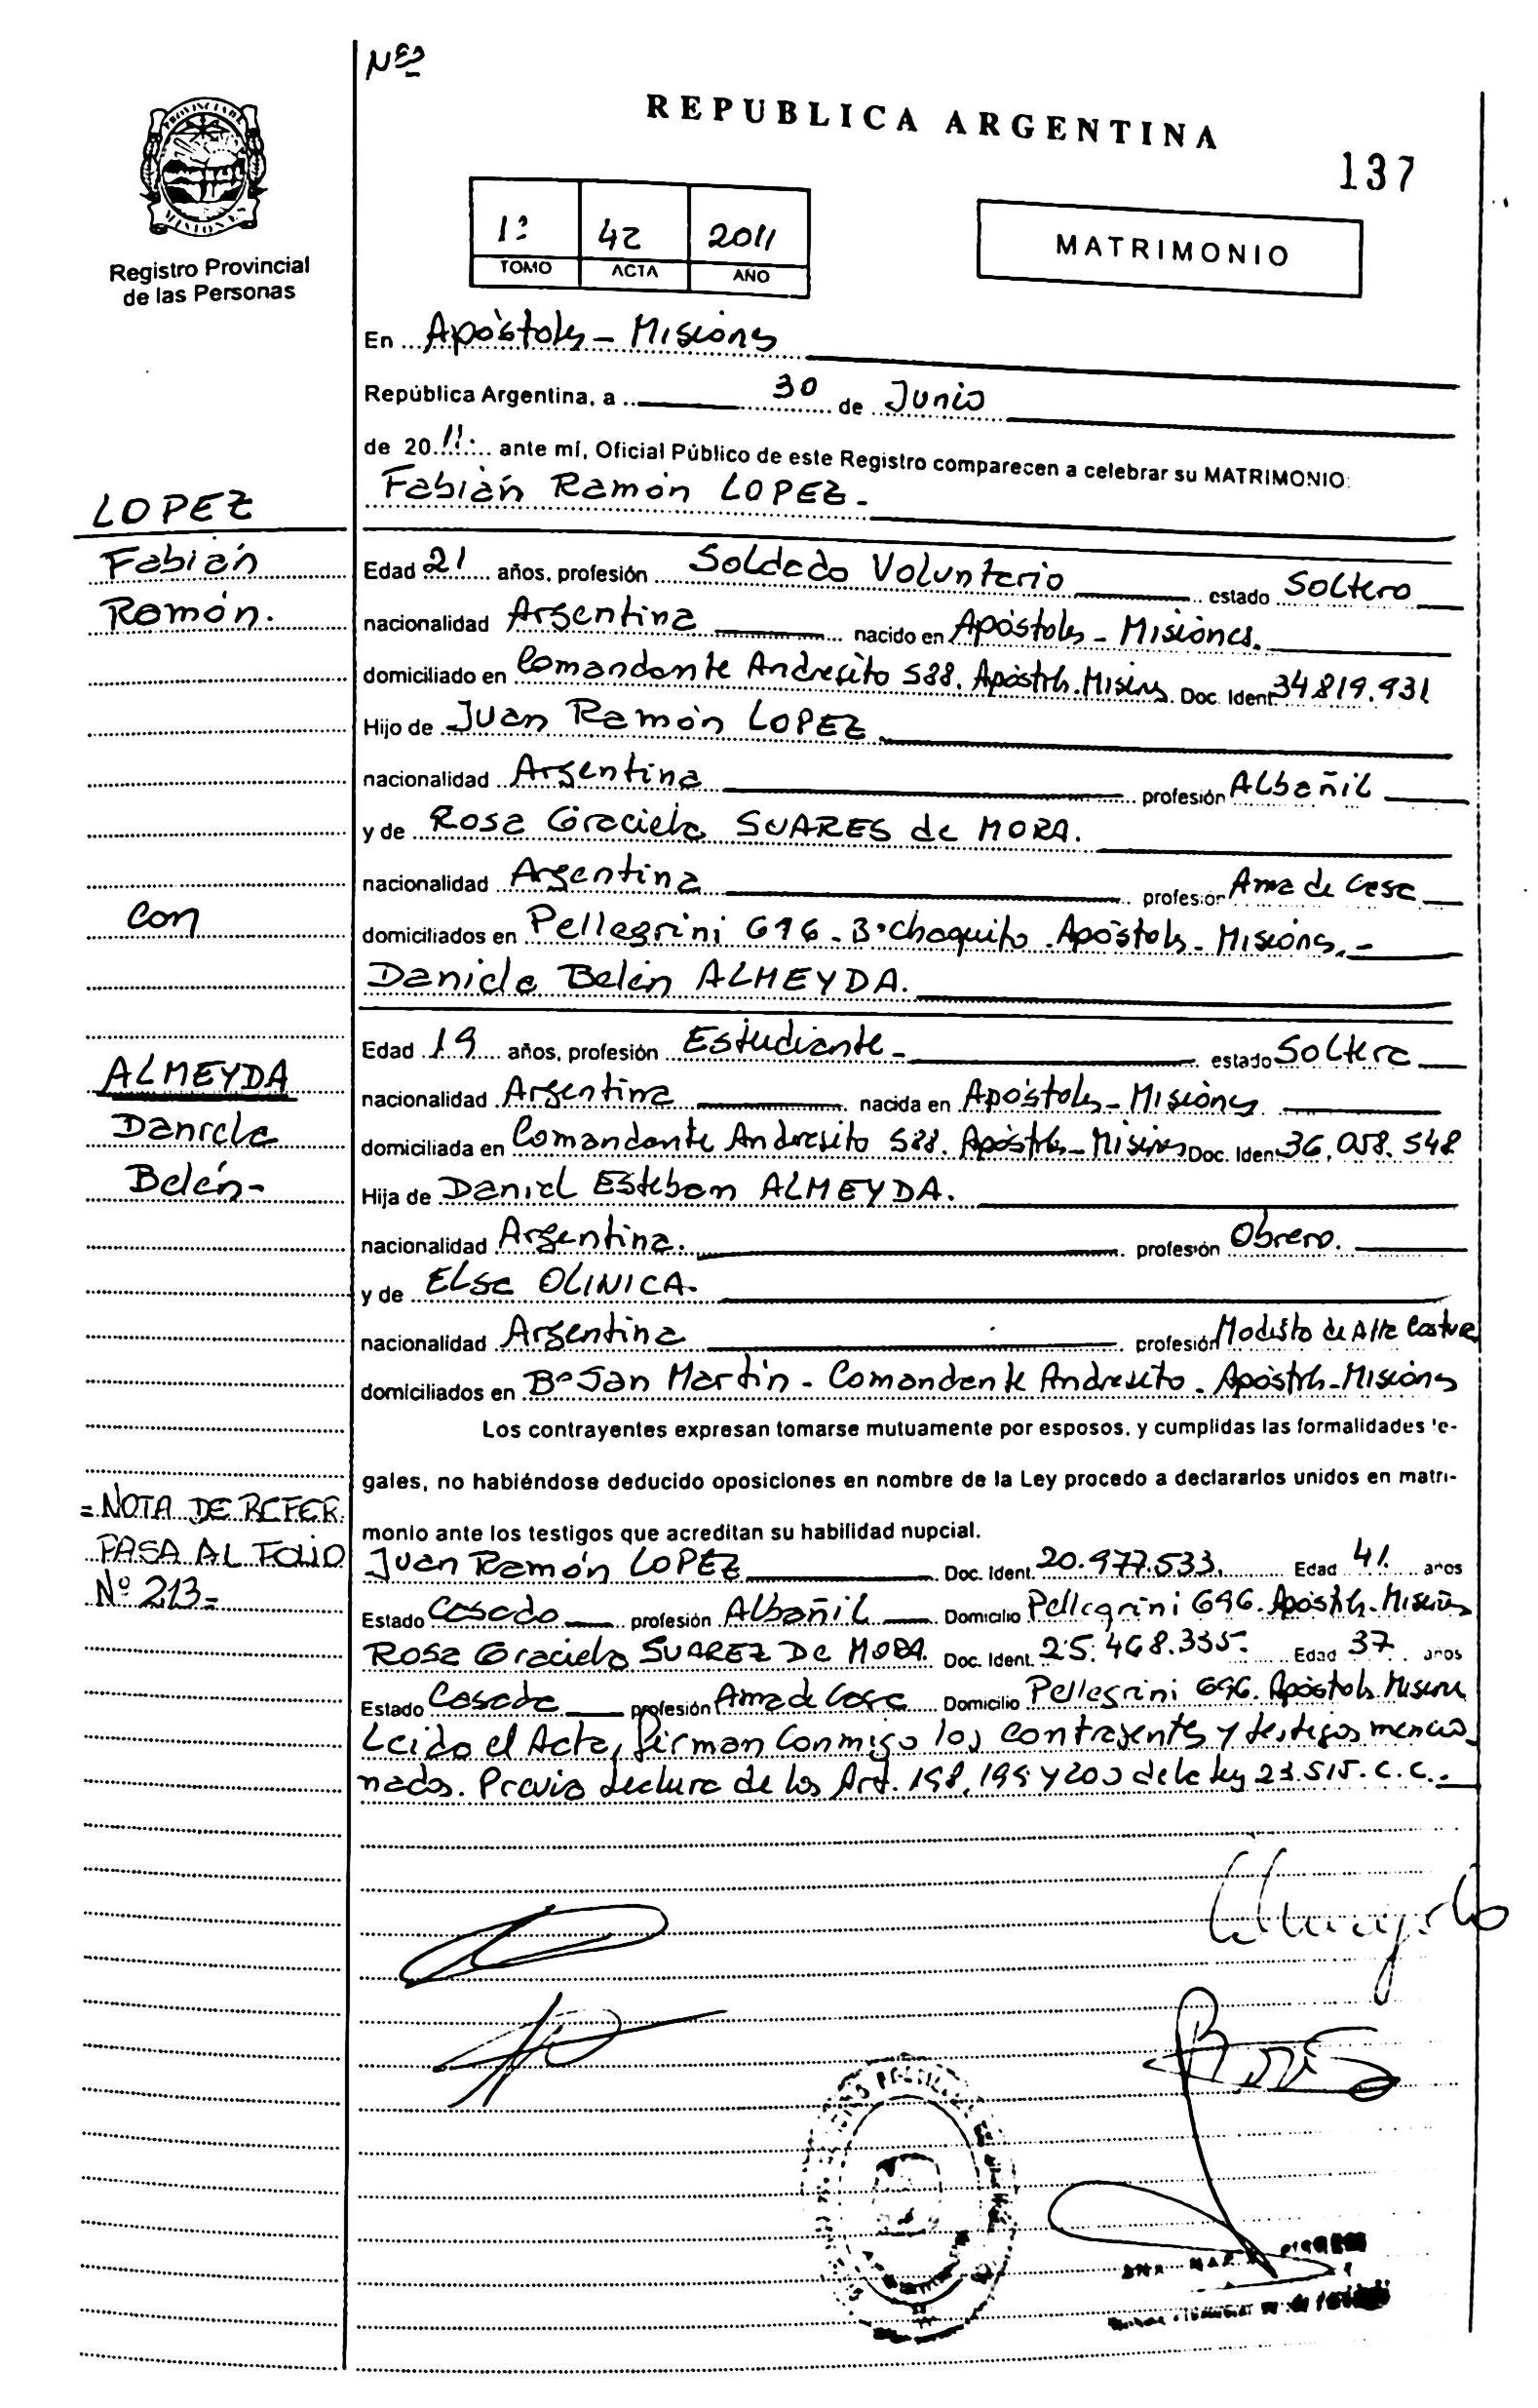 REPUBLICA ARGENTINA
137
Registro Provincial
de las Personas
1º 42 2011
TOMO ACTA AÑO
MATRIMONIO
En Apóstoles - Misiones
República Argentina, a 30 de Junio
de 2011. ante mí, Oficial Público de este Registro comparecen a celebrar su MATRIMONIO:
Fabián Ramón LOPEZ.-
LOPEZ
Fabián
Ramón.
Edad 21 años, profesión Soldado Voluntario estado Soltero
nacionalidad Argentina nacido en Apóstoles - Misiones.
domiciliado en Comandante Andresito 588. Apóstoles. Misiones Doc. Ident. 34.819.931
Hijo de Juan Ramón LOPEZ
nacionalidad Argentina profesión Albañil
y de Rosa Graciela SUARES de MORA.
nacionalidad Argentina profesión Ama de Casa
con
domiciliados en Pellegrini 696 - Bº Chaquito. Apóstoles - Misiones.-
Daniela Belén ALMEYDA.
ALMEYDA
Daniela
Belén-
Edad 19 años, profesión Estudiante- estado Soltera
nacionalidad Argentina nacida en Apóstoles - Misiones
domiciliada en Comandante Andresito 588. Apóstoles - Misiones Doc. Iden. 36.058.548
Hija de Daniel Esteban ALMEYDA.
nacionalidad Argentina. profesión Obrero.
y de Elsa OLINICA.
nacionalidad Argentina profesión Modista de Alta Costura
domiciliados en Bº San Martín - Comandante Andresito. Apóstoles - Misiones
Los contrayentes expresan tomarse mutuamente por esposos, y cumplidas las formalidades le-
gales, no habiéndose deducido oposiciones en nombre de la Ley procedo a declararlos unidos en matri-
monio ante los testigos que acreditan su habilidad nupcial.
=NOTA DE REFER.
PASA AL FOLIO
Nº 213=
Juan Ramón LOPEZ Doc. Ident. 20.977.533. Edad 41. años
Estado Casado profesión Albañil Domicilio Pellegrini 696. Apóstoles. Misiones
Rosa Graciela SUAREZ DE MORA. Doc. Ident. 25.468.335. Edad 37 años
Estado Casada profesión Ama de Casa Domicilio Pellegrini 696. Apóstoles Misiones
Leido el Acta, firman conmigo los contrayentes y testigos mencio
nados. Previa lectura de los Art. 198, 199 y 200 de la ley 23.515. C.C.-